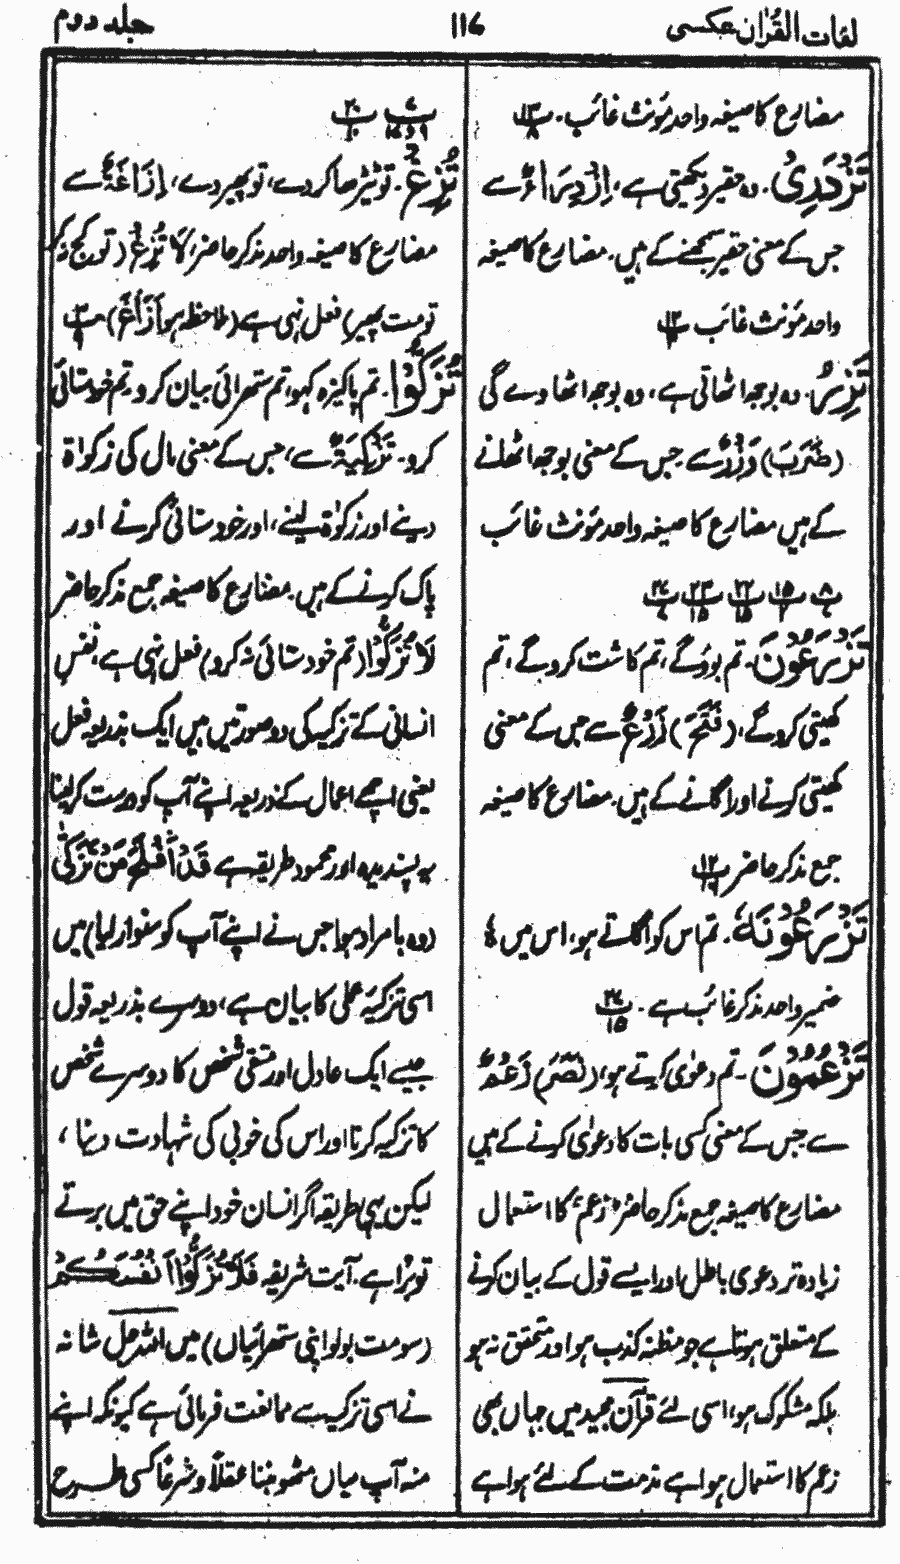 لغات القرآن عکسی
۱۱۶
جلد دوم
مضارع کا صیغہ واحد مؤنث غائب۔ پ۱۲ ۸
تَزْدَرِیْ۔ وہ حقیر دیکھتی ہے، اِزْدِرَاءٌ سے
جس کے معنی حقیر سمجھنے کے ہیں۔ مضارع کا صیغہ
واحد مؤنث غائب پ۱۲
تَزِرُ۔ وہ بوجھ اٹھاتی ہے، وہ بوجھ اٹھاوے گی
(ضَرَبَ) وَزْرٌ سے جس کے معنی بوجھ اٹھانے
کے ہیں مضارع کا صیغہ واحد مؤنث غائب
پ۸ پ۱۵ پ۲۲ پ۲۳ پ۲۷
تَزْرَعُوْنَ۔ تم بوؤگے، تم کاشت کروگے، تم
کھیتی کروگے، (فَتَحَ) زَرْعٌ سے جس کے معنی
کھیتی کرنے اور اگانے کے ہیں۔ مضارع کا صیغہ
جمع مذکر حاضر پ۱۲ ۱۶
تَزْرَعُوْنَهٗ۔ تم اس کو اگاتے ہو، اس میں ہٗ
ضمیر واحد مذکر غائب ہے۔ پ۲۷ ۱۵
تَزْعُمُوْنَ۔ تم دعوٰی کرتے ہو، (نَصَرَ) زَعْمٌ
سے جس کے معنی کسی بات کا دعوٰی کرنے کے ہیں
مضارع کا صیغہ جمع مذکر حاضر ”زعم“ کا استعمال
زیادہ تر دعوی باطل اور ایسے قول کے بیان کرنے
کے متعلق ہوتا ہے جو مظنہ کذب ہو اور متحقق نہ ہو
بلکہ مشکوک ہو، اسی لئے قرآن مجید میں جہاں بھی
زعم کا استعمال ہوا ہے مذمت کے لئے ہوا ہے
پ۷ ۹ و ۱۷ پ۲۰ ۱۰
تُزِغْ۔ تو ٹیڑھا کردے، تو پھیردے، اِزَاغَةٌ سے
مضارع کا صیغہ واحد مذکر حاضر، لَا تُزِغْ (تو کج نہ کر
تو مت پھیر) فعل نہی ہے (ملاحظہ ہو اَزَاغَ) پ۳ ۹
تُزَكُّوْا۔ تم پاکیزہ کہو، تم ستھرائی بیان کرو، تم خودستائی
کرو۔ تَزْکِیَةٌ سے، جس کے معنی مال کی زکوٰة
دینے اور زکوٰة لینے، اور خودستائی کرنے اور
پاک کرنے کے ہیں۔ مضارع کا صیغہ جمع مذکر حاضر
لَا تُزَكُّوْا (تم خودستائی نہ کرو) فعل نہی ہے، نفس
انسانی کے تزکیہ کی دو صورتیں ہیں ایک بذریعہ فعل
یعنی اچھے اعمال کے ذریعہ اپنے آپ کو درست کرلینا
یہ پسندیدہ اور محمود طریقہ ہے قَدْ اَفْلَحَ مَنْ تَزَكّٰى
(وہ بامراد ہوا جس نے اپنے آپ کو سنوار لیا) میں
اسی تزکیۂ عملی کا بیان ہے، دوسرے بذریعہ قول
جیسے ایک عادل اور متقی شخص کا دوسرے شخص
کا تزکیہ کرنا اور اس کی خوبی کی شہادت دینا،
لیکن یہی طریقہ اگر انسان خود اپنے حق میں برتے
تو برا ہے۔ آیت شریفہ فَلَا تُزَكُّوْا اَنْفُسَكُمْ
(سومت بولو اپنی ستھرائیاں) میں اللہ جل شانہ
نے اسی تزکیہ سے ممانعت فرمائی ہے کیونکہ اپنے
منہ آپ میاں مٹھو بننا عقلاً و شرعاً کسی طرح